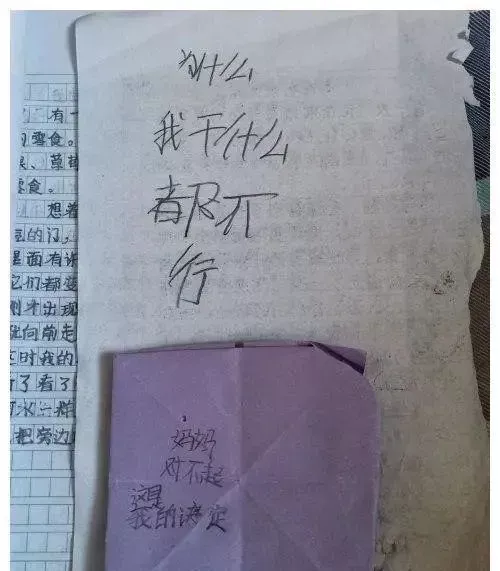 为什么
我干什么
都不
行
妈妈
对不起
这是
我的决定
有一
零食。
、草莓
零食。
想着
的门，
里面有许
它们都变
刚才出现
向前走
时我的
了看了
水一样
把旁边